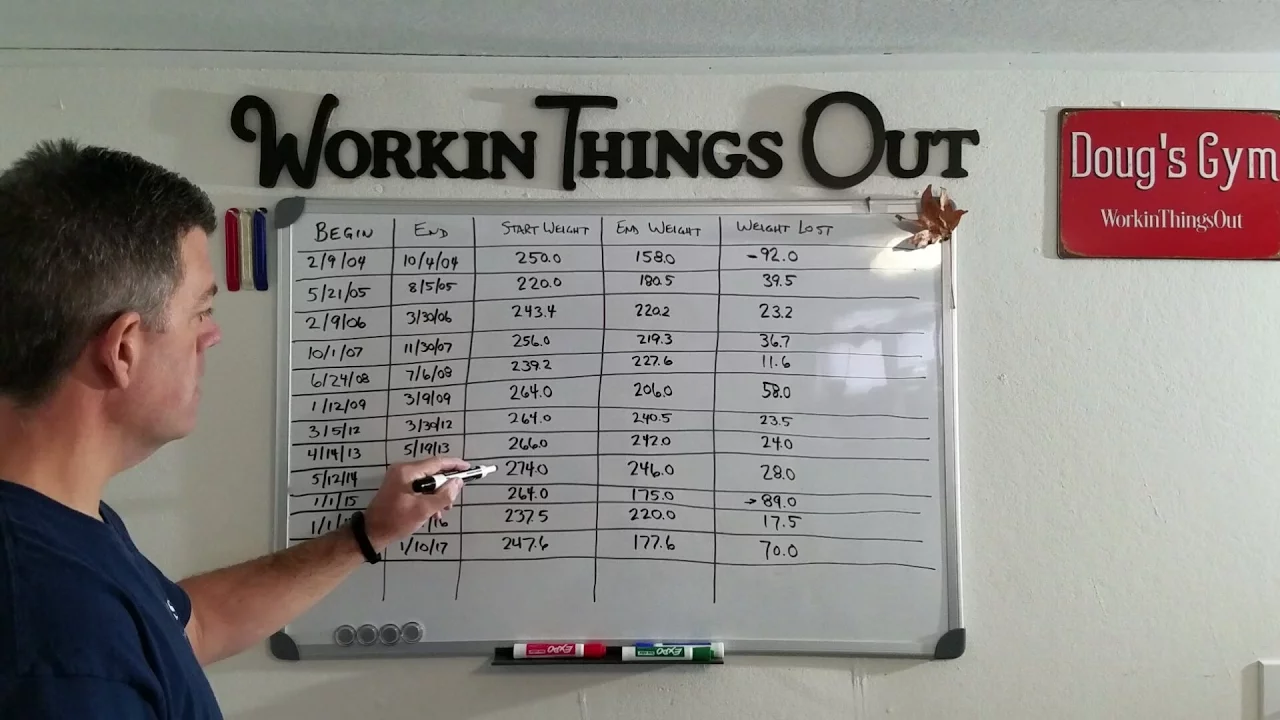 WORKIN THINGS OUT
Doug's Gym
WorkinThingsOut
BEGIN END START WEIGHT END WEIGHT WEIGHT LOST
2/9/04 10/4/04 250.0 158.0 -92.0
5/21/05 8/5/05 220.0 180.5 39.5
2/9/06 3/30/06 243.4 220.2 23.2
10/1/07 11/30/07 256.0 219.3 36.7
6/24/08 7/6/08 239.2 227.6 11.6
1/12/09 3/9/09 264.0 206.0 58.0
3/5/12 3/30/12 264.0 240.5 23.5
4/14/13 5/19/13 266.0 242.0 24.0
5/12/14 274.0 246.0 28.0
1/1/15 264.0 175.0 → 89.0
237.5 220.0 17.5
1/10/17 247.6 177.6 70.0
EXPO EXPO